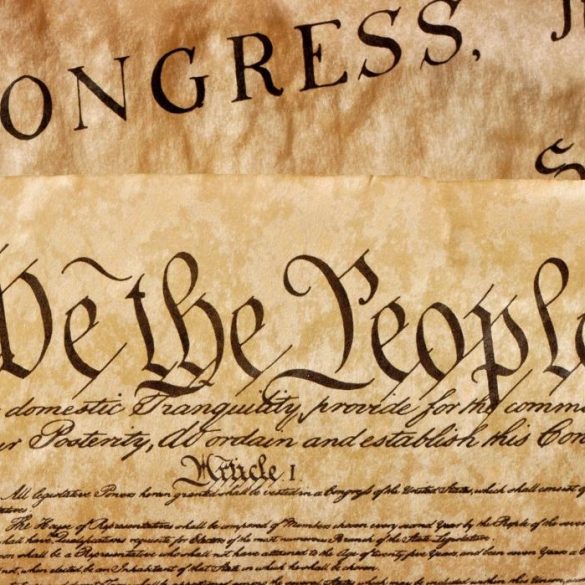 ONGRESS, J
S
We the People
domestic Tranquility, provide for the comm
r Posterity, do ordain and establish this Con
Article. I
All legislative Powers herein granted shall be vested in a Congress of the United States, which shall consist of
The House of Representatives shall be composed of Members chosen every second Year by the People of the seve
shall have Qualifications requisite for Electors of the most numerous Branch of the State Legislature.
shall be a Representative who shall not have attained to the Age of twenty five Years, and been seven Years a
not, when elected, be an Inhabitant of that State in which he shall be chosen.